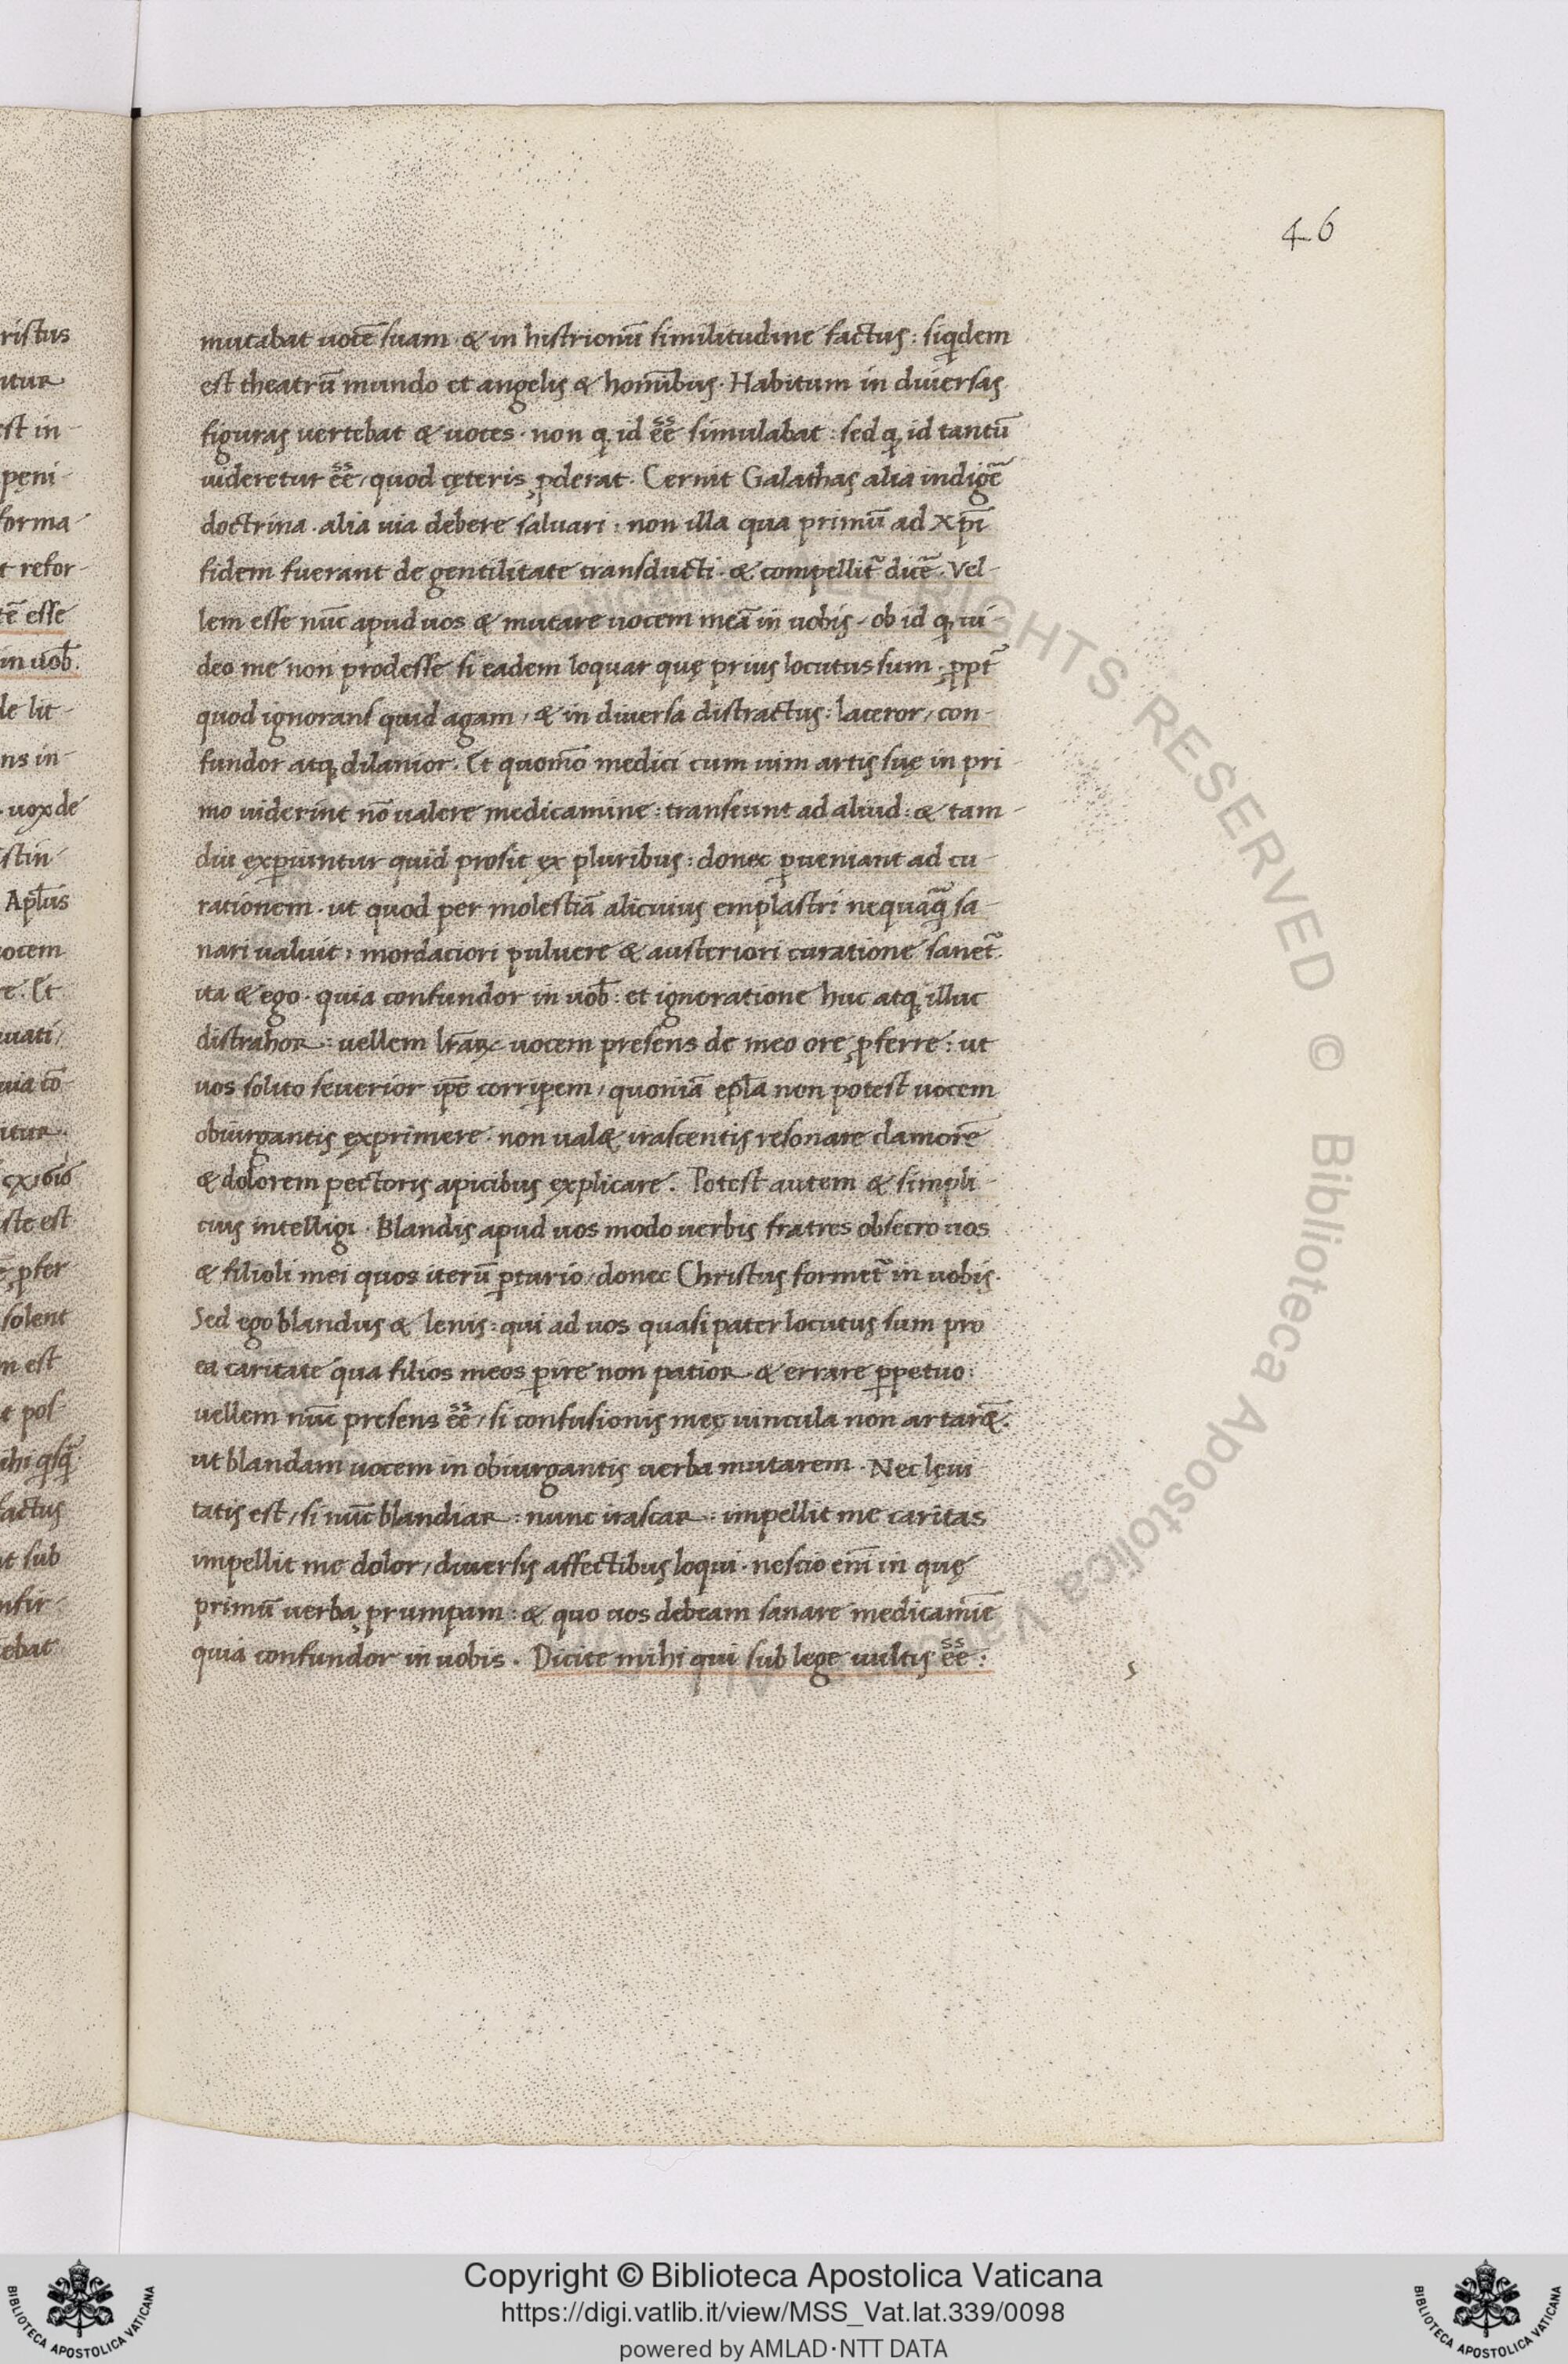 46
mutabat uocē suam · & in histrionū similitudine factus : siqdem
est theatrū mundo et angelis & homībus · Habitum in diuersas
figuras uertebat & uoces · non q, id eē̄ simulabat : sed q, id tantū
uideretur eē̄, quod cęteris ꝓderat · Cernit Galathas alia indigē
doctrina · alia uia debere saluari : non illa qua primū ad xp̄i
fidem fuerant de gentilitate transducti · & compellit̄ dicē̄ · Vel-
lem esse nūc apud uos & mutare uocem meā in uobis, ob id q, ui-
deo me non prodesse si eadem loquar quę prius locutus sum · ꝓpt̄
quod ignorans quid agam, & in diuersa distractus : laceror, con-
fundor atq, dilanior. Et quomō medici cum uim artis suę in pri
mo uiderint nō ualere medicamine : transeunt ad aliud : & tam-
diu ex̨ꝑiuntur quid prosit ex̨ pluribus : donec ꝑueniant ad cu-
rationem · ut quod per molestiā alicuius emplastri nequaq̄ sa-
nari ualuit : mordaciori puluere & austeriori curatione sanet̄.
ita & ego · quia confundor in uob̄ : et ignoratione huc atq, illuc
distrahor : uellem lr̄aꝝ uocem presens de meo ore ꝓferre : ut
uos solito seuerior ip̄e corriꝑem, quoniā ep̄la non potest uocem
obiurgantis exprimere · non ual& irascentis resonare clamorē
& dolorem pectoris apicibus explicare. Potest autem & simpli-
cius intelligi · Blandis apud uos modo uerbis fratres obsecro uos
& filioli mei quos iterū ꝑturio, donec Christus formet̄ in uobis.
Sed ego blandus & lenis : qui ad uos quasi pater locutus sum pro
ea caritate qua filios meos ꝑire non patior & errare ꝑpetuo :
uellem nūc presens eē̄, si confusionis meę uincula non artar&̄.
ut blandam uocem in obiurgantis uerba mutarem · Nec lęui
tatis est, si nūc blandiar : nunc irascar : impellit me caritas
impellit me dolor, diuersis affectibus loqui · nescio enī in quę
primū uerba ꝓrumpam : & quo uos debeam sanare medicamīe
quia confundor in uobis . Dicite mihi qui sub lege uultis eē̄ :
Copyright © Biblioteca Apostolica Vaticana
https://digi.vatlib.it/view/MSS_Vat.lat.339/0098
powered by AMLAD·NTT DATA